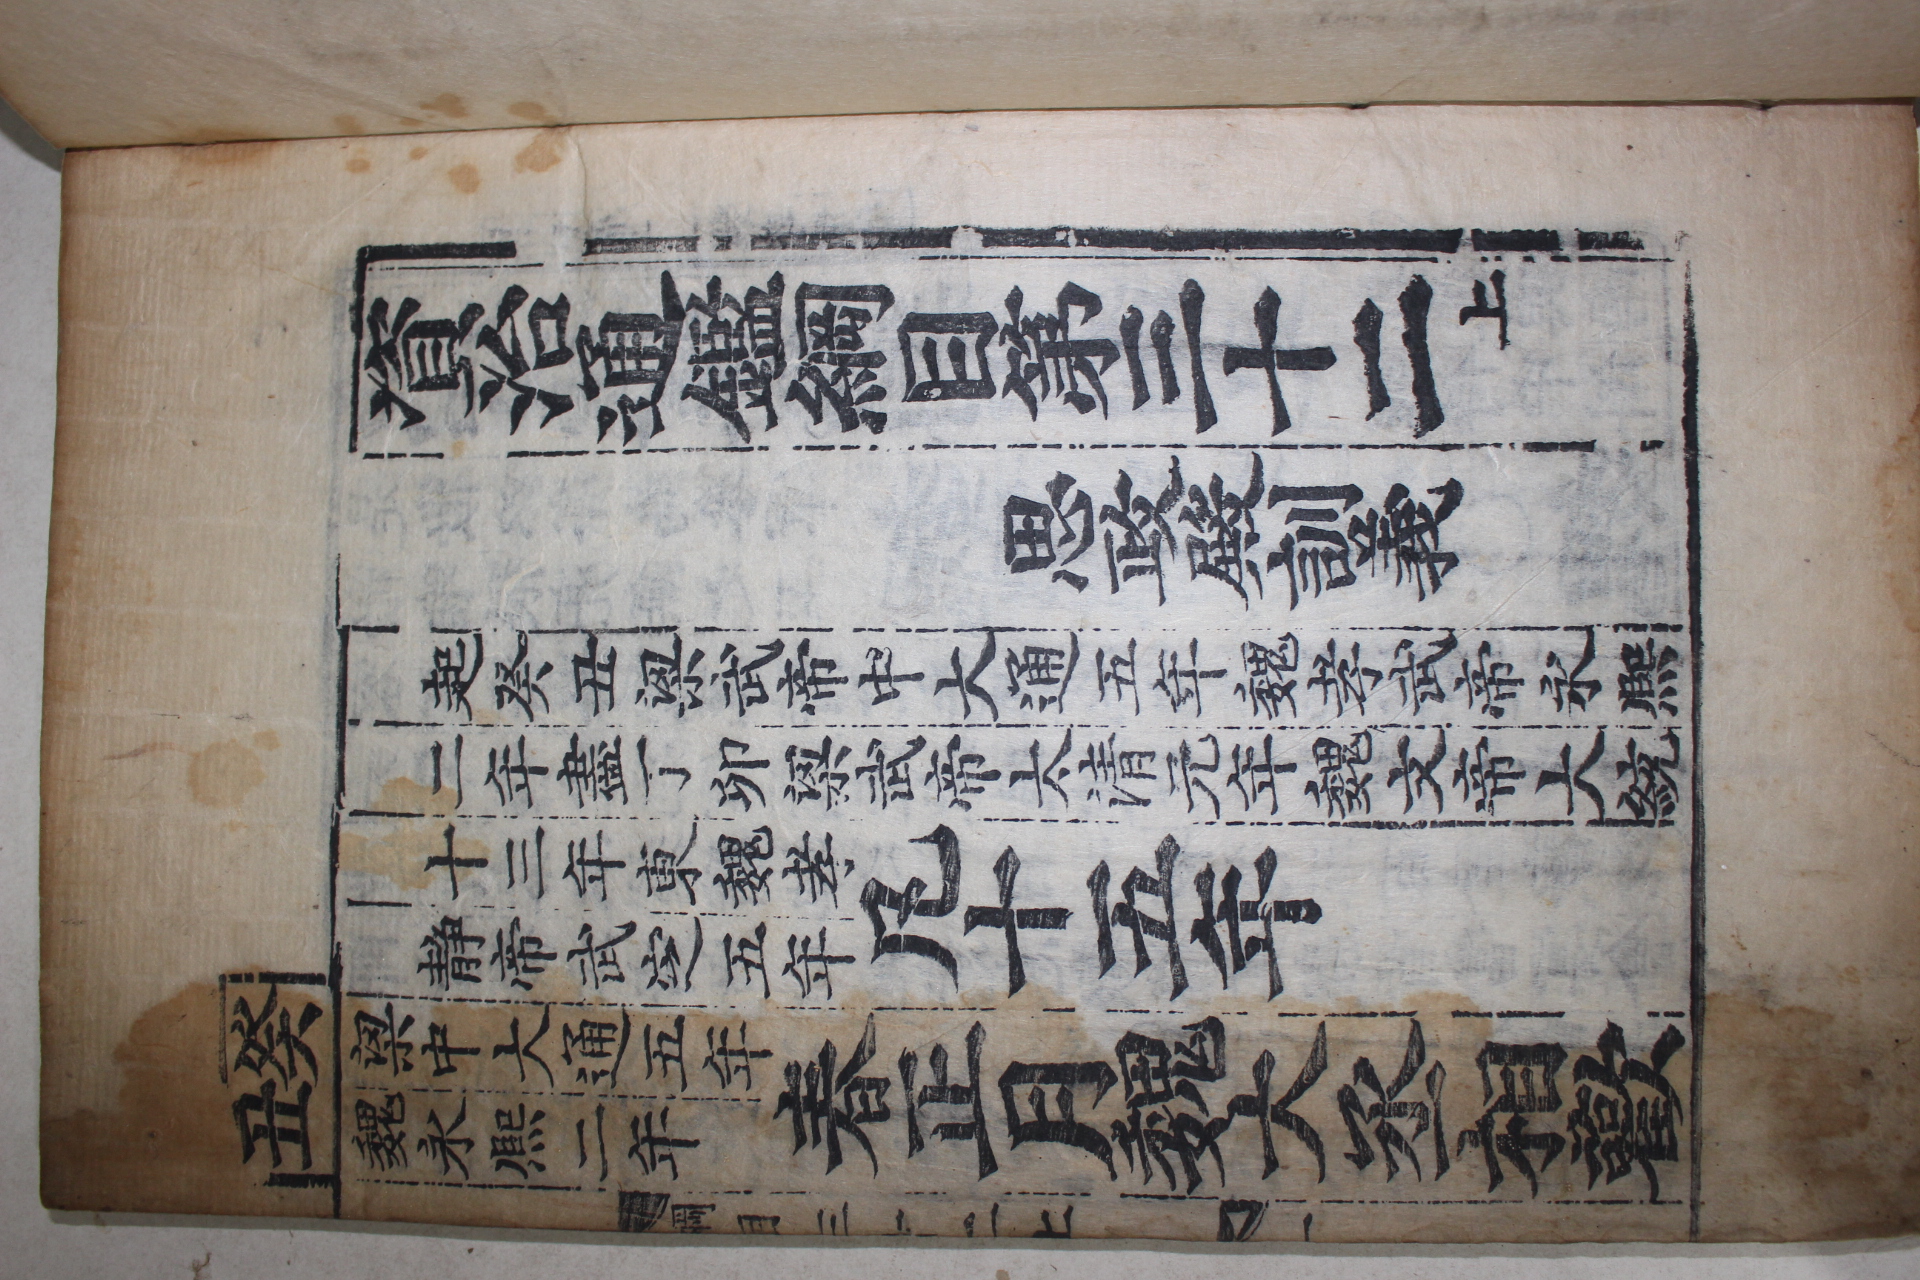 資治通鑑綱目第三十二上
思政殿訓義
起癸丑梁武帝中大通五年魏孝武帝永熙
二年盡丁卯梁武帝太清元年魏文帝大統
十三年東魏孝
静帝武定五年
凡十五年
癸丑
梁中大通五年
魏永熙二年
春正月魏大丞相歡
綱目三十二上
一